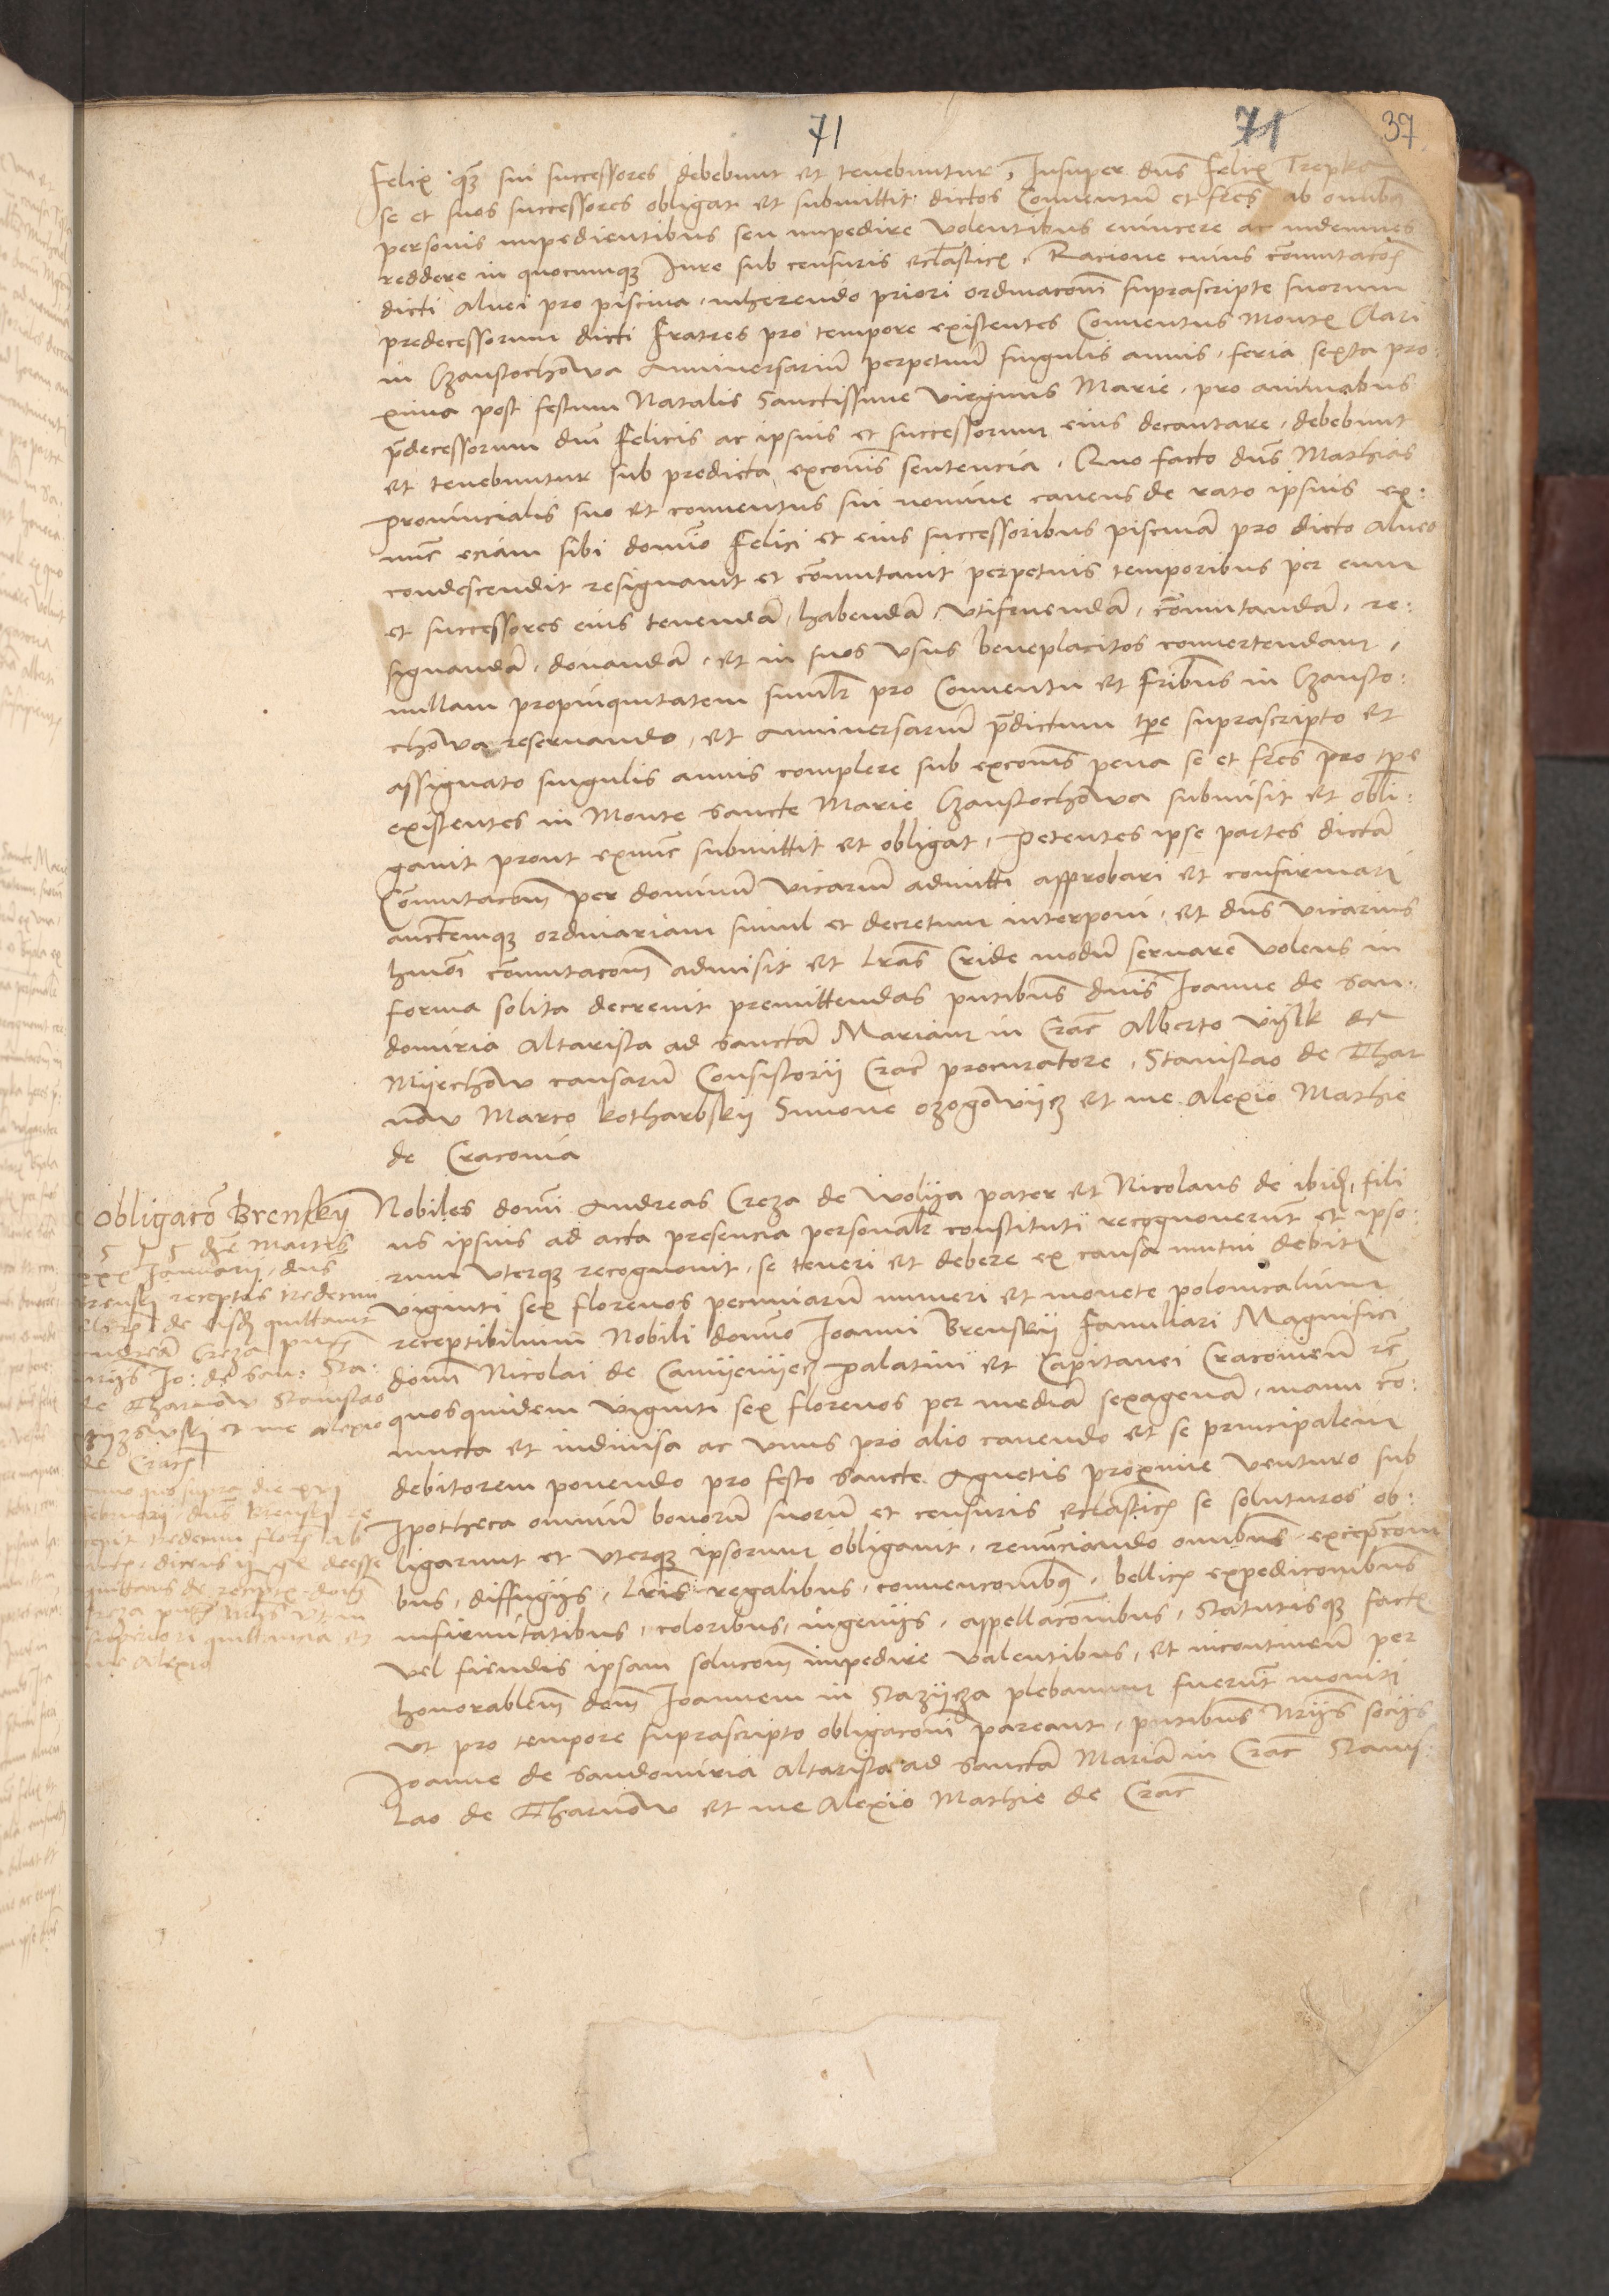 71
71
37
Felix qz sui successores debebunt et tenebuntur, Insuper dns Felix Trepka
se et suos successores obligat et submittit dictos Conventum et fres ab omnibus
personis impedientibus seu impedire volentibus evincere ac indemnes
reddere in quocumque Iure sub censuris ecclasticis. Racione cuius comutacois
dicti Aluei pro piscina inherendo priori ordinacioni suprascripte suorum
predecessorum dicti Fratres pro tempore existentes Conventus Montis Clari
in Czanstochowa Anniversarium perpetuum singulis annis, feria sexta pro:
xima post festum Natalis Sanctissime virginis Marie, pro animabus
predecessorum dni Felicis ac ipsius et successorum eius decantare, debebunt
et tenebuntur sub predicta excomis sentencia. Quo facto dns Mathias
Provincialis suo et conventus sui nomine cavens de rato ipsius ex:
nunc eciam sibi domino Felici et eius successoribus piscinam pro dicto Alueo
condescendit resignavit et comutavit perpetuis temporibus per eum
et successores eius tenendam, habendam, utifruendam, comutandam, re:
signandam, donandam, et in suos usus beneplacitos convertendam,
nullam propinquitatem similr pro Conventu et fribus in Czansto:
chowa reservando, et Anniversarium predictum tpe suprascripto et
assignato singulis annis complere sub excomis pena se et fres pro tpe
existentes in Monte sancte Marie Czanstochowa submisit et obli:
gavit prout exnunc submittit et obligat, Petentes ipse partes dictam
Comutacoem per dominum vicarium admitti approbari et confirmari
auctemque ordinariam simul et decretum interponi, et dns vicarius
hmoi comutacoem admisit et Lras Cride modum servare volens in
forma solita decrevit premittendas pntibus dnis Ioanne de San:
domiria Altarista ad sanctam Mariam in Crac Alberto Vijlk de
Mijechow causarum Consistorij Crac procuratore, Stanislao de Thar
now Marco kotharbskij Simone ozogowijcz et me Alexio Mathie
de Cracovia
Obligaco Brenskij
Nobiles domi Andreas Creza de wolija pater et Nicolaus de ibidem, fili
us ipsius ad acta presencia personalr constituti recognoverunt et ipso:
rum uterque recognovit, se teneri et debere ex causa mutui debiti
viginti sex florenos pecuniarum numeri et monete polonicalium
receptibilium Nobili domino Ioanni Brenskij Familiari Magnifici
domi Nicolai de Camijenijecz Palatini et Capitanei Cracovien rc
quosquidem viginti sex florenos per mediam sexagenam, manu co:
niuncta et indivisa ac unus pro alio cavendo et se principalem
debitorem ponendo pro festo Sancte Agnetis proxime venturo sub
Ipotheca omnium bonorum suorum et censuris ecclasticis se soluturos ob:
ligarunt et uterque ipsorum obligavit, renunciando omnibus excepcioni
bus, diffugijs, Lris regalibus, convencionibus, bellicis expedicionibus
infirmitatibus, coloribus, ingenijs, appellacionibus, Statutisque factis
vel fiendis ipsam solucoem impedire valentibus, et incontinenti per
honorablem dom Ioannem in Stazijcza plebanum fuerunt moniti
ut pro tempore suprascripto obligacioni pareant, pntibus Nrijs socijs
Ioanne de Sandomiria Altarista ad sanctam Mariam in Crac Stanis:
lao de Tharnow et me Alexio Mathie de Crac
5 1 5 die Martis
xxx Ianuarij, dns
Brenskij receptis tredecim
floren de eisdem quittavit
Andream Creza pntibus
Nrijs Io: de San: Sta:
de Tharnow Stanislao
et me alexio
de Crac
Anno quo supra die xvj
Februarij dns Brenskij re
cepit tredecim floren ab
deesse
quittans de receptis dom
Creza pntibus Nrijs ut in
superiori quittancia et
me Alexio